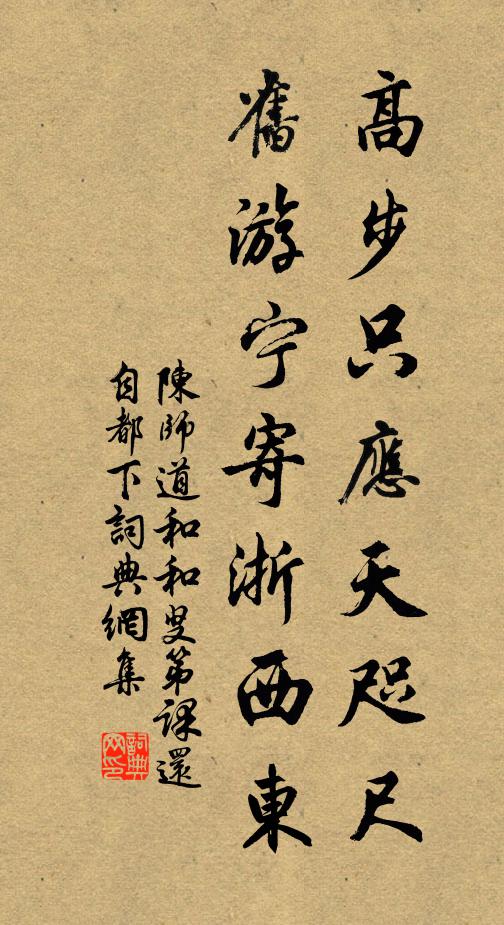 高步只應天咫尺
舊游宁寄浙西東
陳師道和和叟第課還
自都下詞典網集
詞典网印